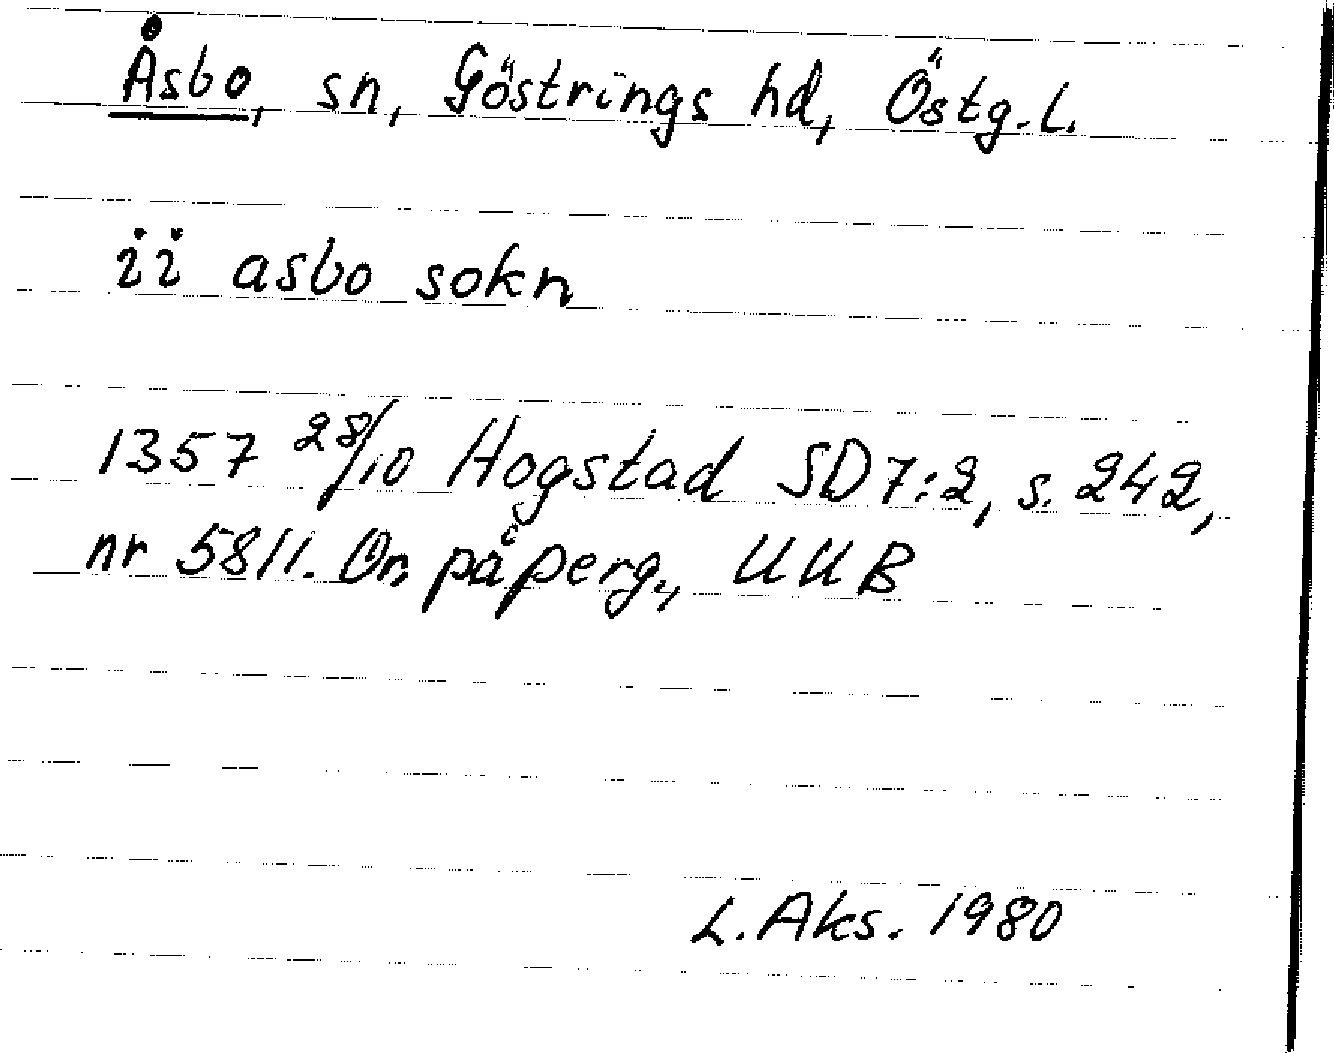 Åsbo, sn, Göstrings hd, Östg.L.
ii asbo sokn
1357 28/10 Hogstad SD 7:2, s. 242,
nr 5811. Or. på perg., UUB
L. Aks. 1980